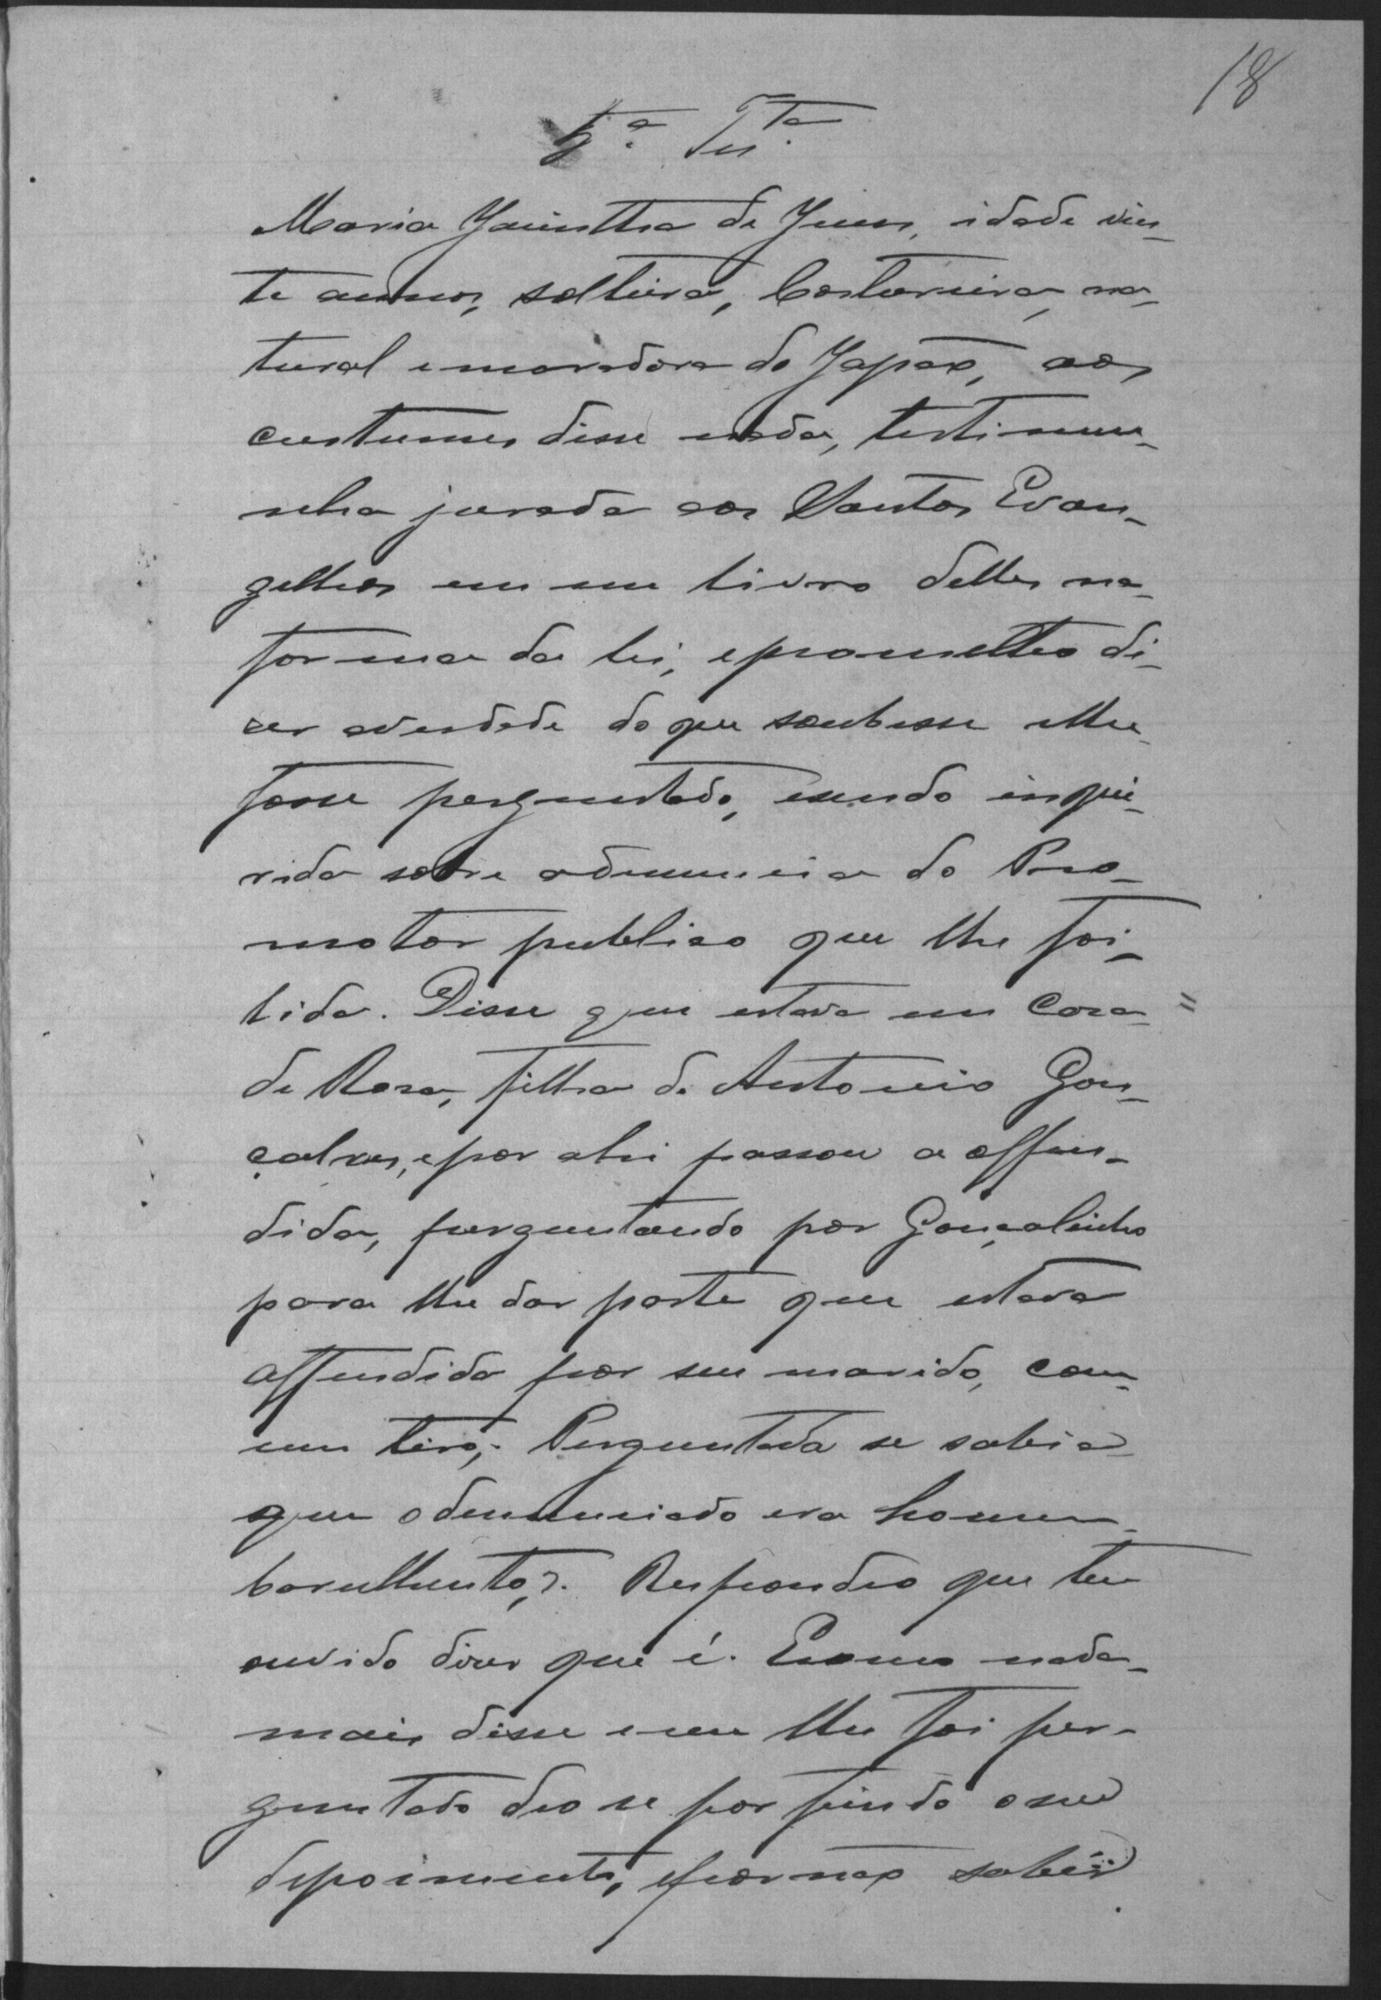 18
5ª Tes.ta
Maria Jacintha de Jesus, idade vin-
te annos, solteira, Costureira, na-
tural e moradora do Japão, aos
custumes disse nada, testimu-
nha jurada aos Santos Evan-
gelhos em um livro delles na
forma da lei, eprometteo di-
zer averdade do que soubesse elhe
fosse perguntado, esendo inque-
rida sobre adenuncia do Pro-
motor publico que lhe foi
lida. Disse que estava em Casa =
de Rosa, filha de Antonio Gon-
çalves, epor ahi passou a offen-
dida, perguntando por Gonçalinho
para lhe dar parte que estava
offendida por seu marido, com
um tiro; Perguntada se sabia
que odenunciado era homem
barulhento,?. Respondeo que tem
ouvido dizer que é. Ecomo nada
mais disse e nem lhe foi per-
guntado deo se por findo o seu
depoimento, epor não saber